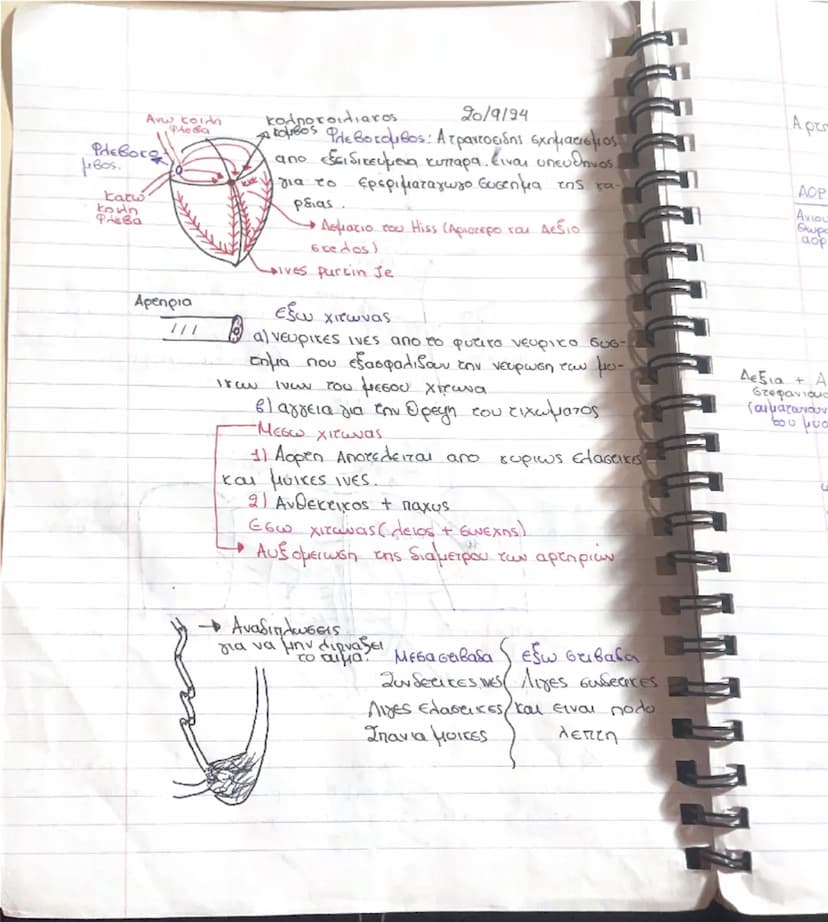 20/9/24
Ανω κοιλη
Φλεβα
κολποκοιλιακος
κομβος
Φλεβοκο
μβος.
Κατω
κοιλη
Φλεβα
Φλεβοκομβος: Ατρακτοειδης σχηματισμος
απο εξειδικευμενα κυτταρα. Ειναι υπευθηνος
για το ερεριματαγωγο συστημα της κα-
ρδιας.
→ Δεματιο του Hiss (Αριστερο και Δεξιο
σκελος)
→ ινες purcin je
Αρτηρια
Εξω χιτωνας
α) νευρικες ινες απο το φυτικο νευρικο συσ-
τημα που εξασφαλιζουν την νευρωση των μυ-
ικων ινων του μεσου χιτωνα
β) αγγεια για την θρεψη του τιχωματος
Μεσω χιτωνας
1) Αορτη Αποτελειται απο κυριως ελαστικες
και μυικες ινες.
2) Ανθεκτικος + παχυς
Εσω χιτωνας (λειος + συνεχης)
→ Αυξομειωση της διαμετρου των αρτηριών
→ Αναδιπλωσεις
για να μην
το αιμα.
Μεσα στιβαδα
Συνδετικες ινες
Λιγες ελαστικες
Σπανια μυικες
εξω στιβαδα
Λιγες συνδετικες
και ειναι πολυ
λεπτη
Αρτη
ΑΟΡ
Θωρα
αορ
Δεξια + Α
στεφανιαι
του μυο